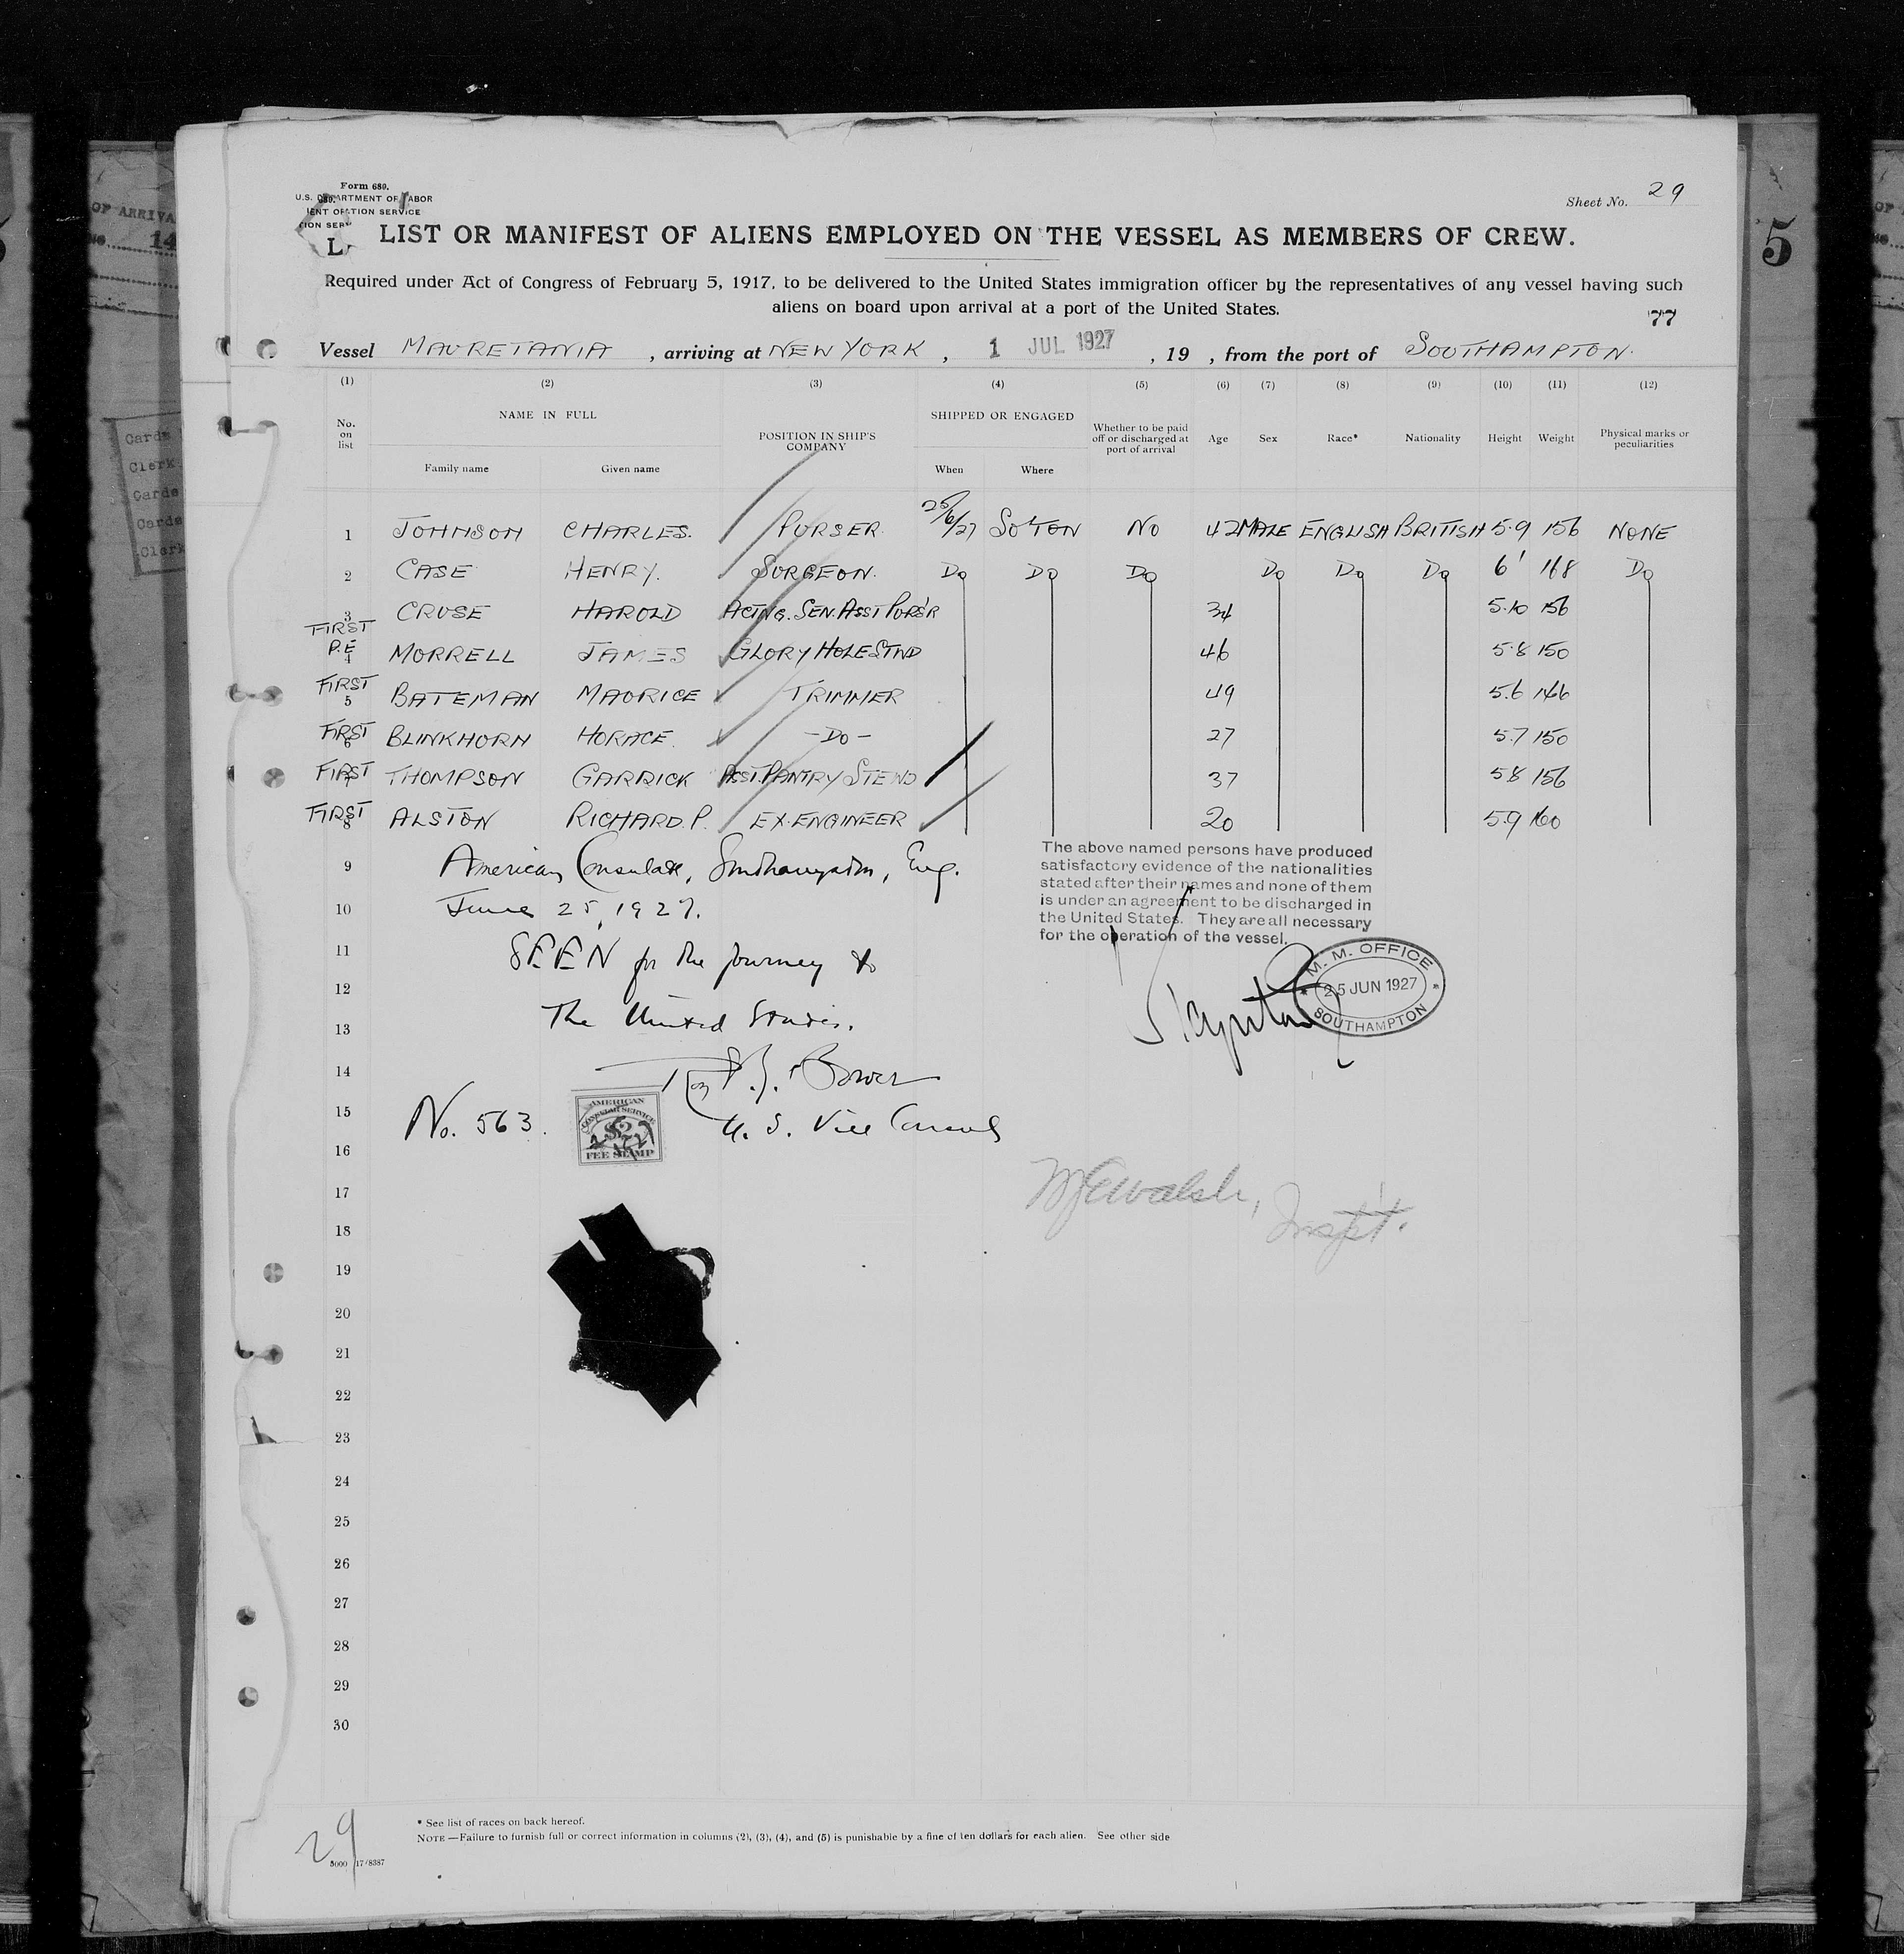 Form 689.
U.S. DEPARTMENT OF LABOR
Sheet No. 29
LIST OR MANIFEST OF ALIENS EMPLOYED ON THE VESSEL AS MEMBERS OF CREW.
Required under Act of Congress of February 5, 1917, to be delivered to the United States immigration officer by the representatives of any vessel having such
aliens on board upon arrival at a port of the United States.
77
Vessel MAURETANIA, arriving at NEW YORK, 1 JUL 1927, 19 , from the port of SOUTHAMPTON.
(1) (2) (3) (4) (5) (6) (7) (8) (9) (10) (11) (12)
No. on list NAME IN FULL Family name Given name POSITION IN SHIP'S COMPANY SHIPPED OR ENGAGED When Where Whether to be paid off or discharged at port of arrival Age Sex Race* Nationality Height Weight Physical marks or peculiarities
1 JOHNSON CHARLES. PURSER. 25/6/27 SO'TON NO 42 MALE ENGLISH BRITISH 5.9 156 NONE
2 CASE HENRY. SURGEON. Do Do Do Do Do Do 6' 168 Do
3 CRUSE HAROLD ACTNG. SEN. ASST PURS'R 34 5.10 156
FIRST P.E 4 MORRELL JAMES GLORY HOLE STWD 46 5.8 150
FIRST 5 BATEMAN MAURICE TRIMMER 49 5.6 146
FIRST 6 BLINKHORN HORACE. - Do - 27 5.7 150
FIRST 7 THOMPSON GARRICK ASST. PANTRY STEWD 37 5 8 156
FIRST 8 ALSTON RICHARD. P. EX. ENGINEER 20 5.9 160
The above named persons have produced
satisfactory evidence of the nationalities
stated after their names and none of them
is under an agreement to be discharged in
the United States. They are all necessary
for the operation of the vessel.
M. M. OFFICE
25 JUN 1927
SOUTHAMPTON
9 American Consulate, Southampton, Eng.
10 June 25, 1927.
11 SEEN for the journey to
12
13 The United States.
14 Bower
15 No. 563. U. S. Vice Consul
AMERICAN
CONSULAR SERVICE
$2
FEE STAMP
16
17 Walsh, Inspt.
18
19
20
21
22
23
24
25
26
27
28
29
30
* See list of races on back hereof.
NOTE—Failure to furnish full or correct information in columns (2), (3), (4), and (5) is punishable by a fine of ten dollars for each alien. See other side
29
5000 17/8387
5
OF ARRIVA
14
Cards
Clerk
Cards
Cards
Clerk